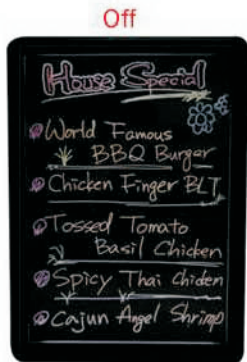 Off
House Special
World Famous
BBQ Burger
Chicken Finger BLT
Tossed Tomato
Basil Chicken
Spicy Thai chicken
Cajun Angel Shrimp